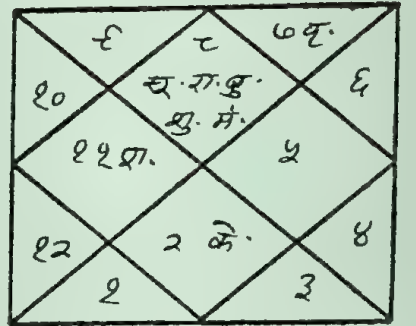 ९ ८ ७ वृ.
१० च. रा. बु. ६
शु. मं.
११ श. ५
१२ २ के. ४
१ ३